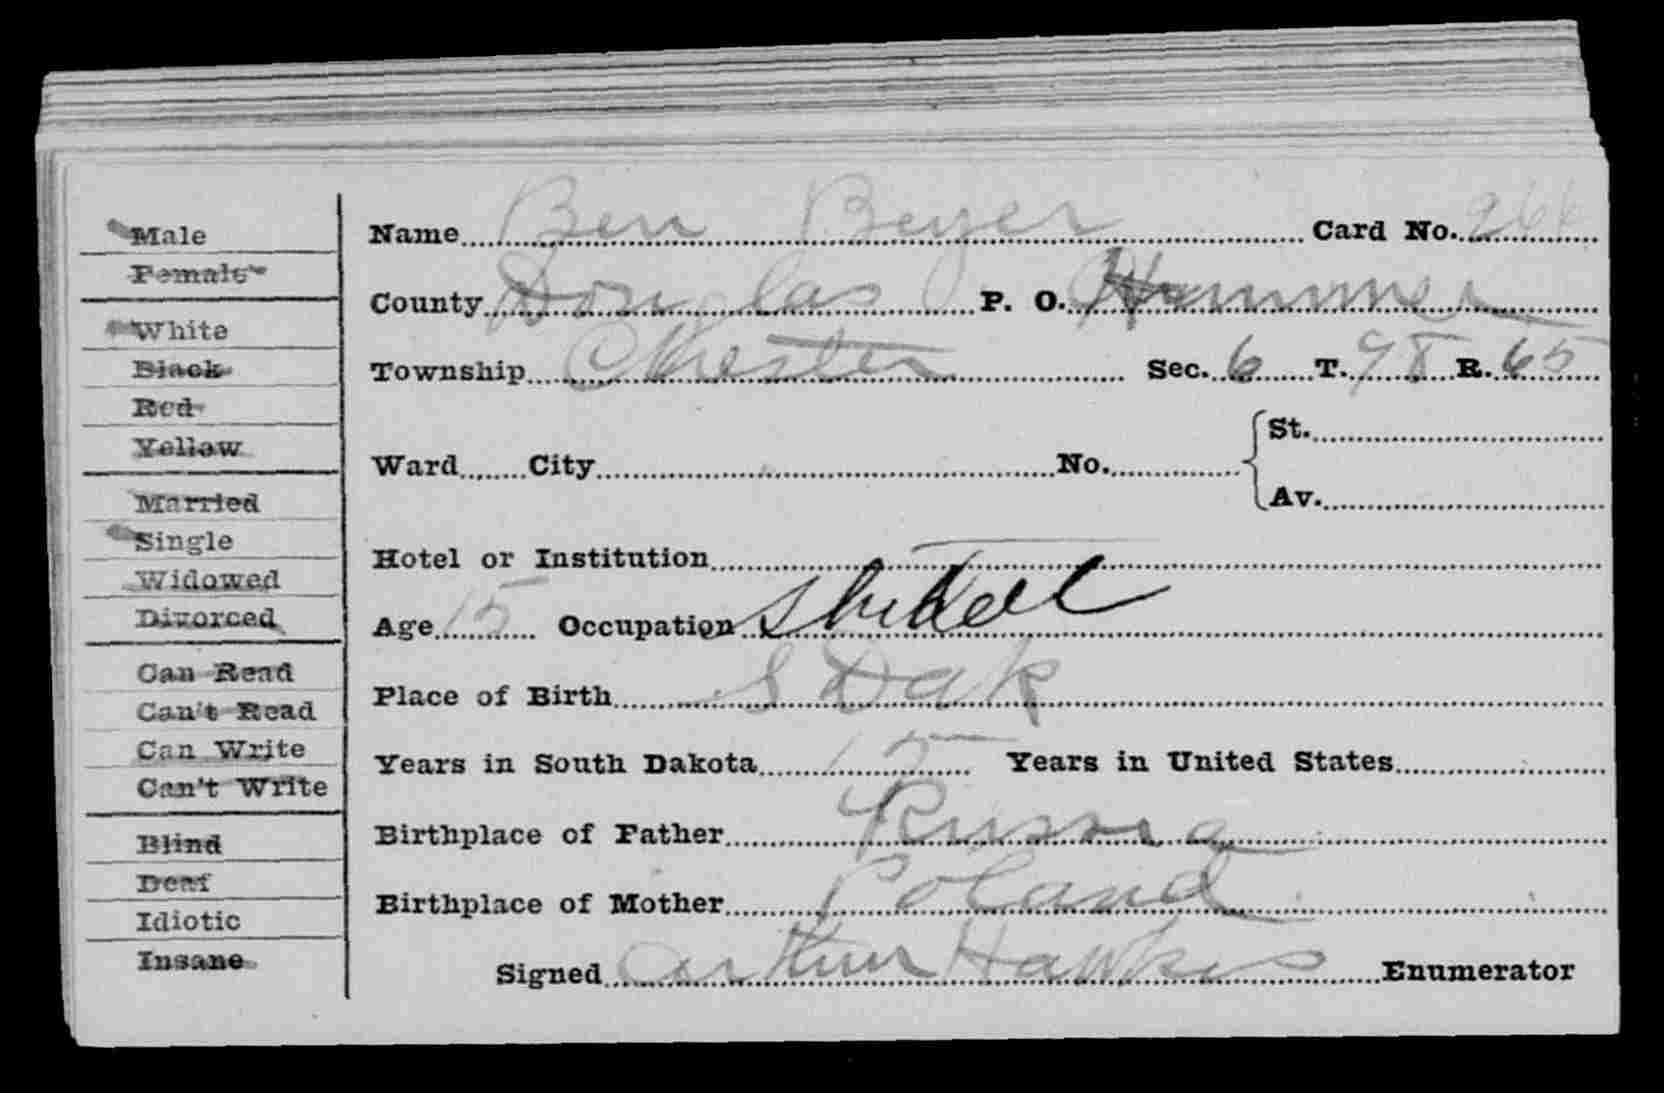 Male
Female
White
Black
Red
Yellow
Married
Single
Widowed
Divorced
Can Read
Can't Read
Can Write
Can't Write
Blind
Deaf
Idiotic
Insane
Name Ben Beyer Card No. 266
County Douglas P. O.
Township Chester Sec. 6 T. 98 R. 65
St.
Ward City No.
Av.
Hotel or Institution
Age 15 Occupation
Place of Birth S Dak
Years in South Dakota 15 Years in United States
Birthplace of Father Russia
Birthplace of Mother Poland
Signed Arthur Hawkes Enumerator